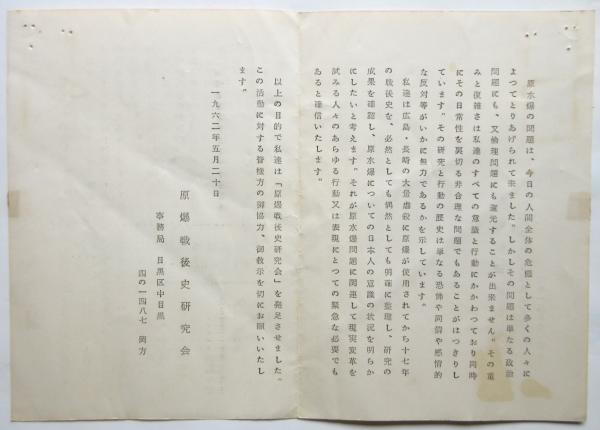 原水爆の問題は、今日の人間全体の危機として多くの人々に
よつてとりあげられて来ました。しかしその問題は単なる政治
問題にも、又倫理問題にも還元することが出来ません。その重
みと複雑さは私達のすべての意識と行動にかかわつており同時
にその日常性を裏切る非合理な問題でもあることがはつきりし
ています。その研究と行動の歴史は単なる恐怖や同情や感情的
な反対等がいかに無力であるかを示しています。
私達は広島・長崎の大量虐殺に原爆が使用されてから十七年
の戦後史を、必然としても偶然としても明確に整理し、研究の
成果を確認し、原水爆についての日本人の意識の状況を明らか
にしたいと考えます。それが原水爆問題に関連して現実変革を
試みる人々のあらゆる行動又は表現にとつての緊急な必要でも
あると確信いたします。
以上の目的で私達は「原爆戦後史研究会」を発足させました。
この活動に対する皆様方の御協力、御教示を切にお願いいたし
ます。
一九六二年五月二十日
原爆戦後史研究会
事務局 目黒区中目黒
四の一四八七 岡方